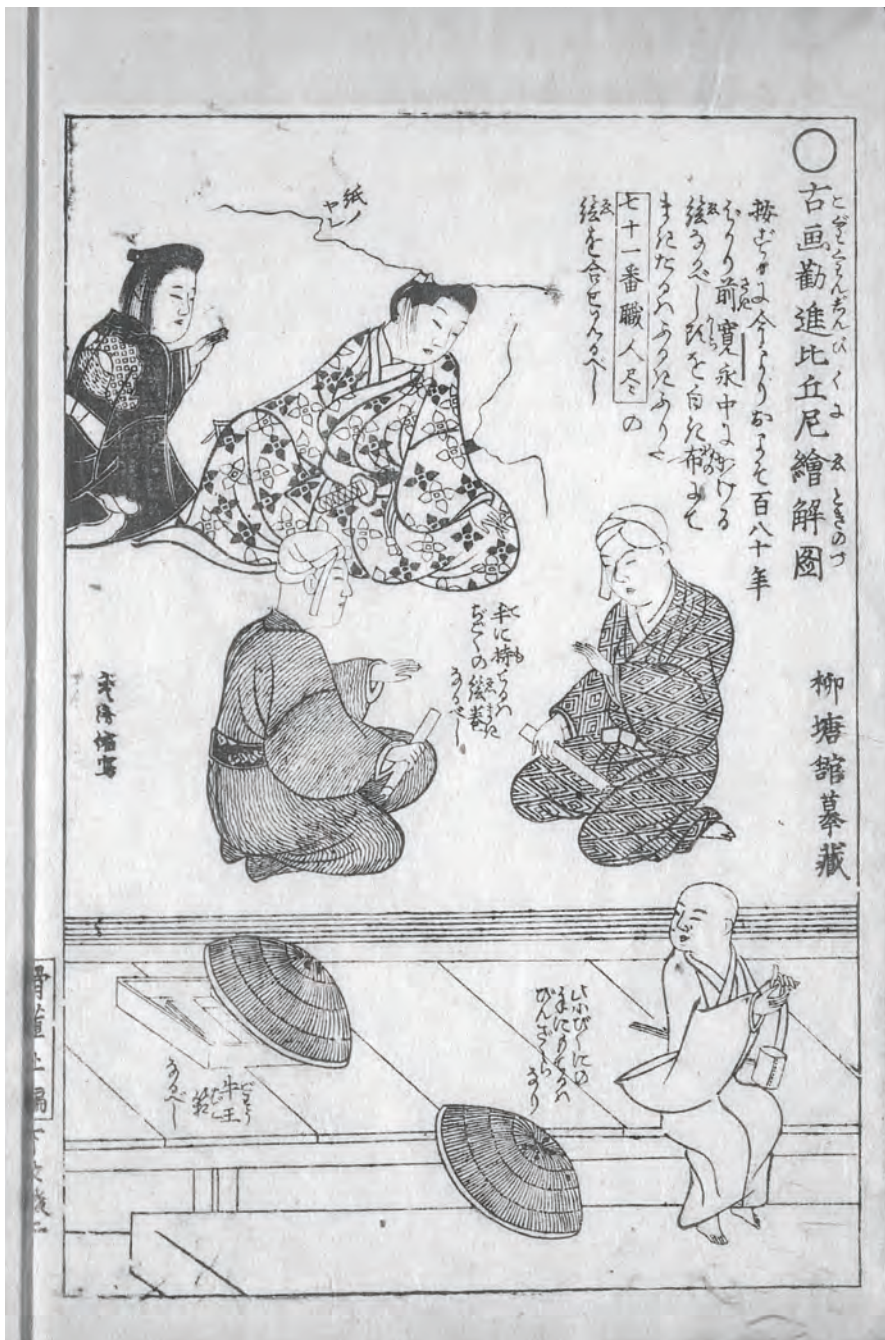 ○古画勸進比丘尼繪解図
按ずるに今よりおよそ百八十年
ばかり前寛永中にかける
絵なるべし頭を白き布にて
まきたるハふるきふり也
七十一番職人尽の
絵を合せ見るべし
柳塘舘摹藏
紙ノ
ヤレ
手に持たるハ
ぢごくの絵巻
なるべし
武清縮寫
此小びくにの
手にもてるハ
びんざゝら
なり
牛王
箱
なるべし
骨董上編